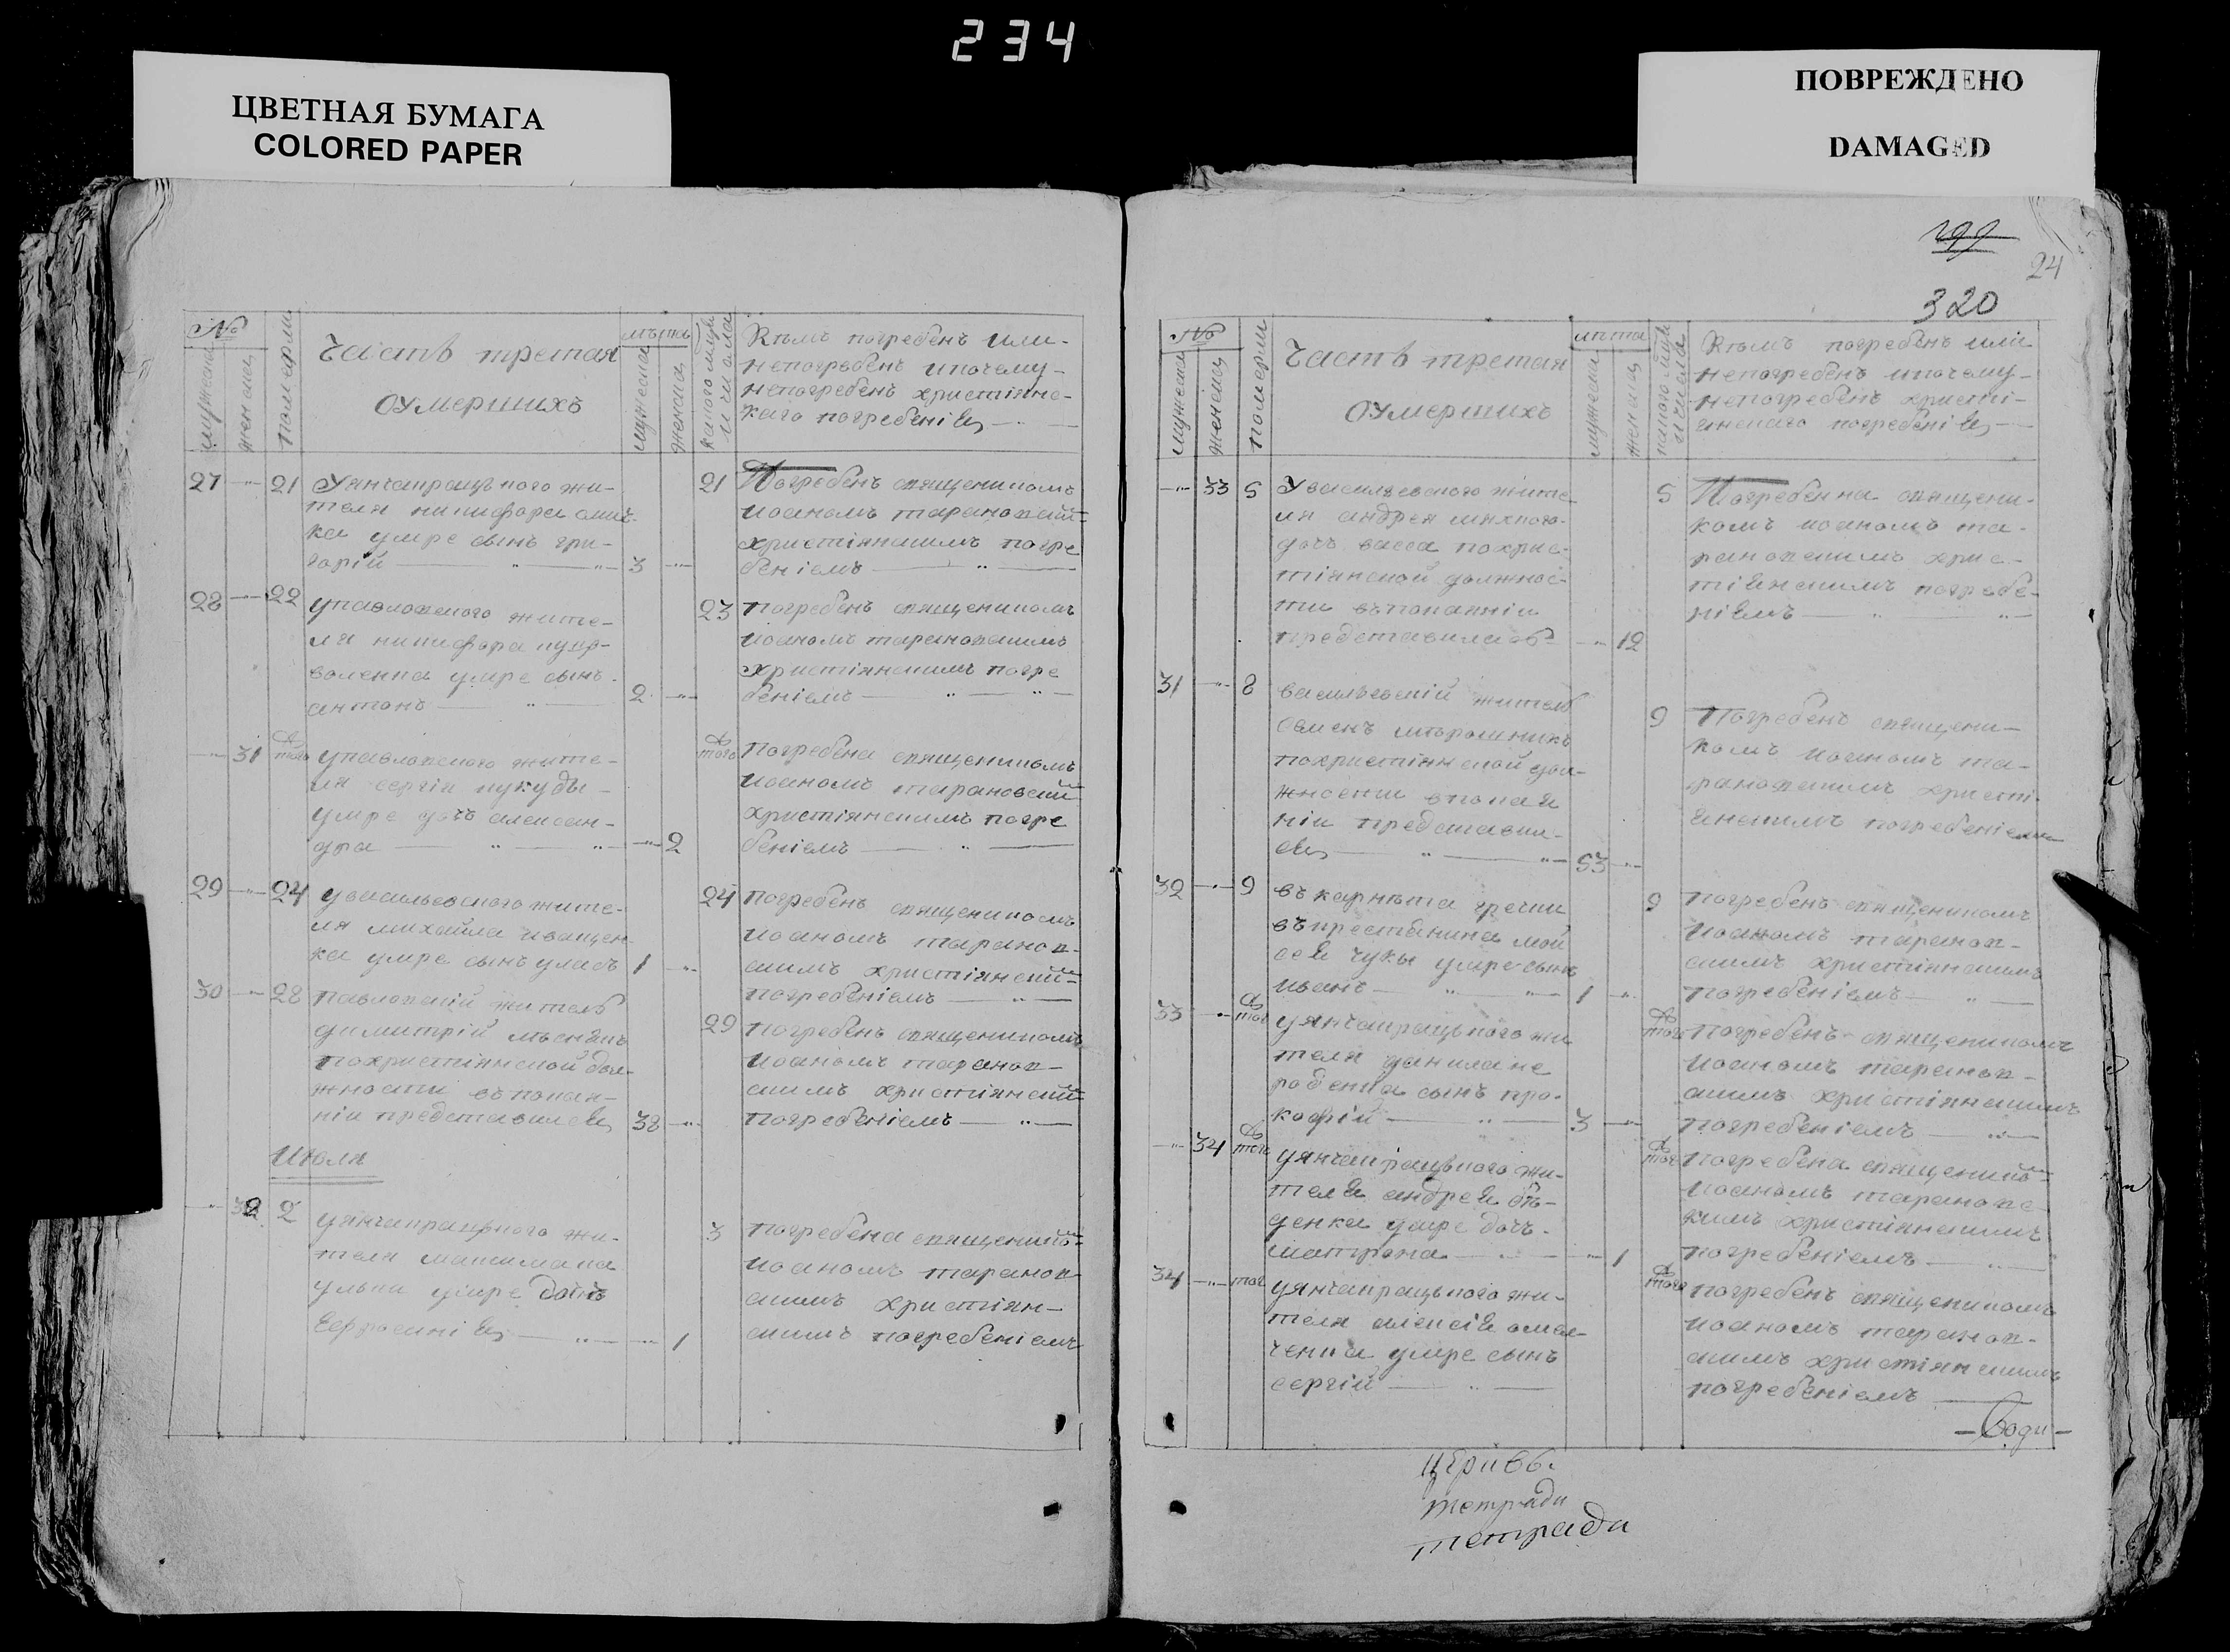 234
ЦВЕТНАЯ БУМАГА
COLORED PAPER
ПОВРЕЖДЕНО
DAMAGED
24
320
№
мужеска
женска
померли
Часть третая
оумершихъ
лѣта
мужеска
женска
какого мѣся
и числа
Кѣмъ погребенъ или-
непогребенъ ипочему-
непогребенъ христіянс-
каго погребенія
27 21 Уянчапрацького жи-
теля никифора
ка умре сынъ гри-
горій 3
21 Погребенъ священикомъ
иоаномъ тарановским
христіянскимъ погре
беніемъ
28 22 упавловского жите-
ля никифора
валенка умре сынъ
антонъ 2
23 погребенъ священикомъ
иоаномъ тарановскимъ
христіянскимъ погре
беніемъ
31 того упавловского жите-
ля сергія
умре дочъ алексан-
дра 2
того погребена священикомъ
иоаномъ тарановским
христіянскимъ погре
беніемъ
29 24 увасильевского жите-
ля михайла иващен-
ка умре сынъ уласъ 1
24 погребенъ священикомъ
иоаномъ таранов-
скимъ христіянским
погребеніемъ
30 28 павловскій житель
димитрій
похристіянской дол-
жности въпокая-
ніи представился 38
29 погребенъ священикомъ
иоаномъ таранов-
скимъ христіянским
погребеніемъ
Июля
32 2 уянчапрацького жи-
теля максима
умре дочъ
Ефросинія 1
3 погребена священиком
иоаномъ таранов
скимъ христіян-
скимъ погребеніемъ
№
мужеска
женска
померли
Часть третая
оумершихъ
лѣта
мужеска
женска
какого мѣся
и числа
Кѣмъ погребенъ или
непогребенъ ипочему-
непогребенъ христі-
янского погребенія
33 5 Увасильевского жите
ля андрея
дочъ васса похрис-
тіянской должнос-
ти въпокаяніи
представиласъ 12
5 Погребенна священи-
комъ иоаномъ та-
рановскимъ хрис-
тіянскимъ погребе-
ніемъ
31 8 васильевскій житель
Семенъ мѣрошникъ
похристіянской дол-
жности впокая
ніи представил-
ся 53
9 Погребенъ священи-
комъ иоаномъ та-
рановскимъ христі-
янскимъ погребеніемъ
32 9 въ
въ мой
сея чукы умре сынъ
иванъ 1
9 погребенъ священикомъ
иоаномъ таранов-
скимъ христіянскимъ
погребеніемъ
33 того уянчапрацького жи
теля данила не
сынъ про-
кофій 3
того погребенъ священикомъ
иоаномъ таранов-
скимъ христіянскимъ
погребеніемъ
34 того уянчапрацького жи-
теля андрея бѣ-
денка умре дочъ
матрона 1
того погребена священиком
иоаномъ тарановс
кимъ христіянскимъ
погребеніемъ
34 того уянчапрацького жи-
теля алексія омел-
ченка умре сынъ
сергій
того погребенъ священикомъ
иоаномъ таранов-
скимъ христіянскимъ
погребеніемъ
церквы
тетради
тетради